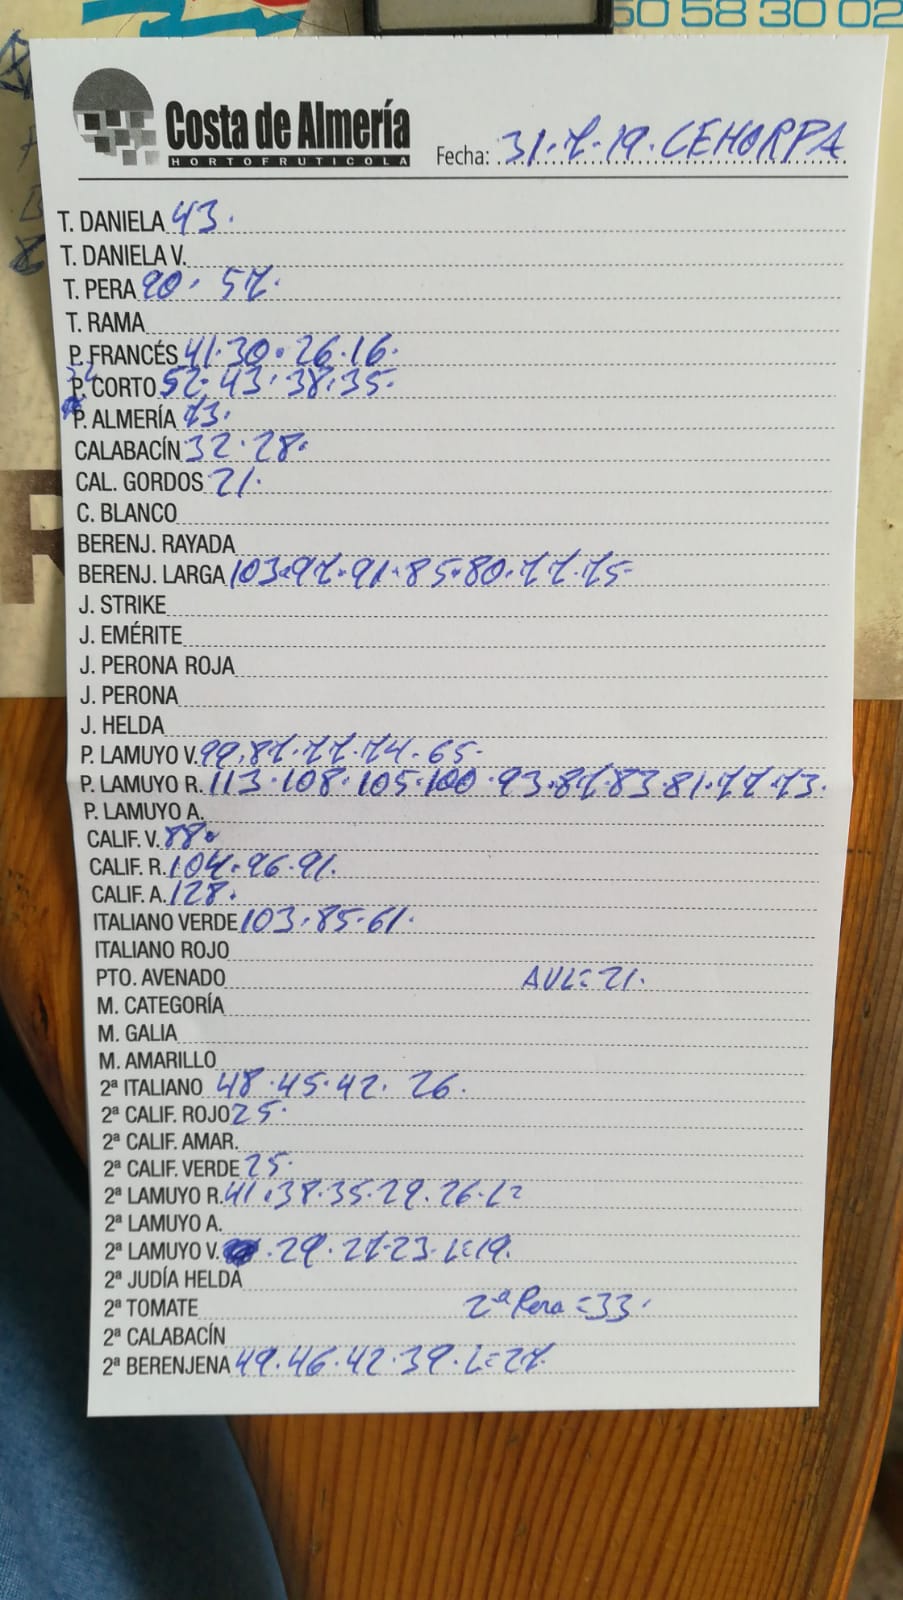 50 58 30 02
Costa de Almería
HORTOFRUTICOLA
Fecha: 31.7.19. CEHORPA
T. DANIELA 43.
T. DANIELA V.
T. PERA 90. 57.
T. RAMA
P. FRANCÉS 41.30.26.16.
P. CORTO 52.43.38.35.
32
P. ALMERÍA 73.
CALABACÍN 32.28.
CAL. GORDOS 21.
C. BLANCO
BERENJ. RAYADA
BERENJ. LARGA 103.97.91.85.80.77.75-
J. STRIKE
J. EMÉRITE
J. PERONA ROJA
J. PERONA
J. HELDA
P. LAMUYO V. 99.87.77.74.65.
P. LAMUYO R. 113.108.105.100.93.87.83.81.77.73.
P. LAMUYO A.
CALIF. V. 88.
CALIF. R. 104.96.91.
CALIF. A. 128.
ITALIANO VERDE 103.85.61.
ITALIANO ROJO
PTO. AVENADO AVL=21.
M. CATEGORÍA
M. GALIA
M. AMARILLO
2ª ITALIANO 48.45.42. 26.
2ª CALIF. ROJO 25.
2ª CALIF. AMAR.
2ª CALIF. VERDE 25.
2ª LAMUYO R. 41.38.35.29.26.L=
2ª LAMUYO A.
2ª LAMUYO V. .29.27.23.L=19.
2ª JUDÍA HELDA
2ª TOMATE 2ª Pera=33.
2ª CALABACÍN
2ª BERENJENA 49.46.42.39.L=27.